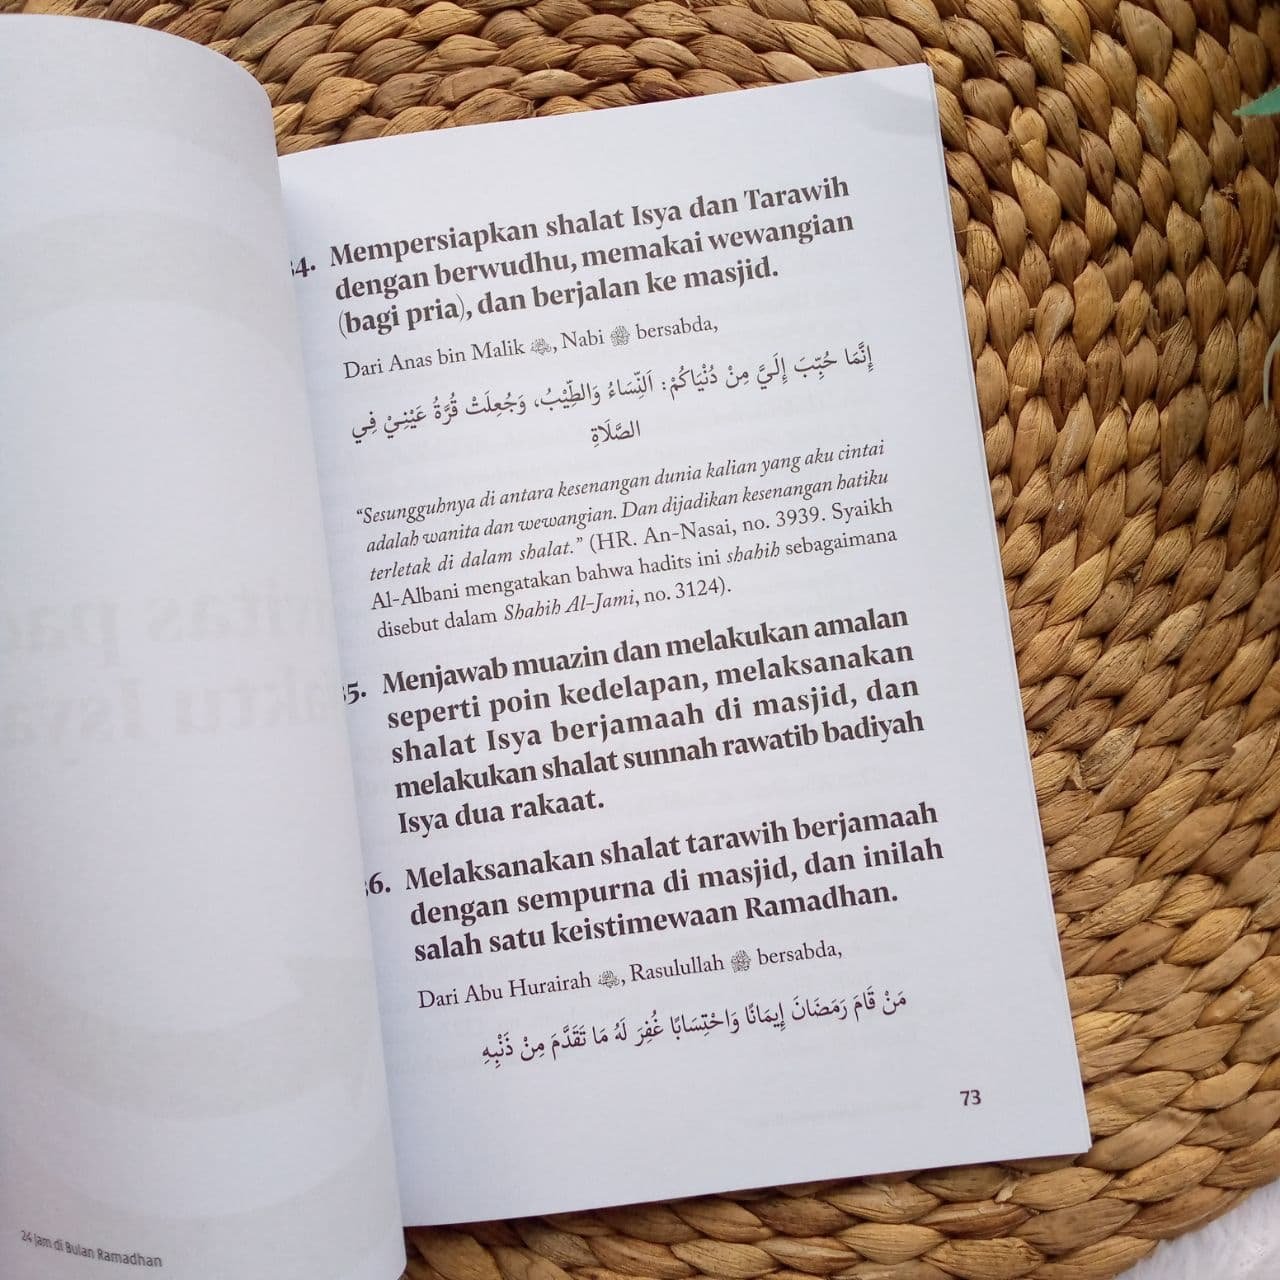 4. Mempersiapkan shalat Isya dan Tarawih
dengan berwudhu, memakai wewangian
(bagi pria), dan berjalan ke masjid.
Dari Anas bin Malik, Nabi ﷺ bersabda,
إِنَّمَا حُبِّبَ إِلَيَّ مِنْ دُنْيَاكُمْ: اَلنِّسَاءُ وَالطِّيْبُ، وَجُعِلَتْ قُرَّةُ عَيْنِيْ فِي
الصَّلَاةِ
“Sesungguhnya di antara kesenangan dunia kalian yang aku cintai
adalah wanita dan wewangian. Dan dijadikan kesenangan hatiku
terletak di dalam shalat.” (HR. An-Nasai, no. 3939. Syaikh
Al-Albani mengatakan bahwa hadits ini shahih sebagaimana
disebut dalam Shahih Al-Jami, no. 3124).
5. Menjawab muazin dan melakukan amalan
seperti poin kedelapan, melaksanakan
shalat Isya berjamaah di masjid, dan
melakukan shalat sunnah rawatib badiyah
Isya dua rakaat.
6. Melaksanakan shalat tarawih berjamaah
dengan sempurna di masjid, dan inilah
salah satu keistimewaan Ramadhan.
Dari Abu Hurairah, Rasulullah ﷺ bersabda,
مَنْ قَامَ رَمَضَانَ إِيمَانًا وَاحْتِسَابًا غُفِرَ لَهُ مَا تَقَدَّمَ مِنْ ذَنْبِهِ
73
24 Jam di Bulan Ramadhan